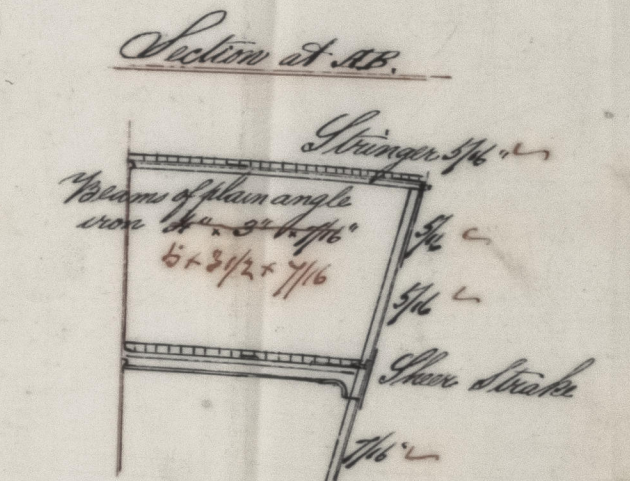 Section at AB.
Stringer 5/16"
Beams of plain angle
iron 4" x 3" x 7/16"
5 x 3 1/2 x 7/16
5/16
5/16
Sheer Strake
7/16"